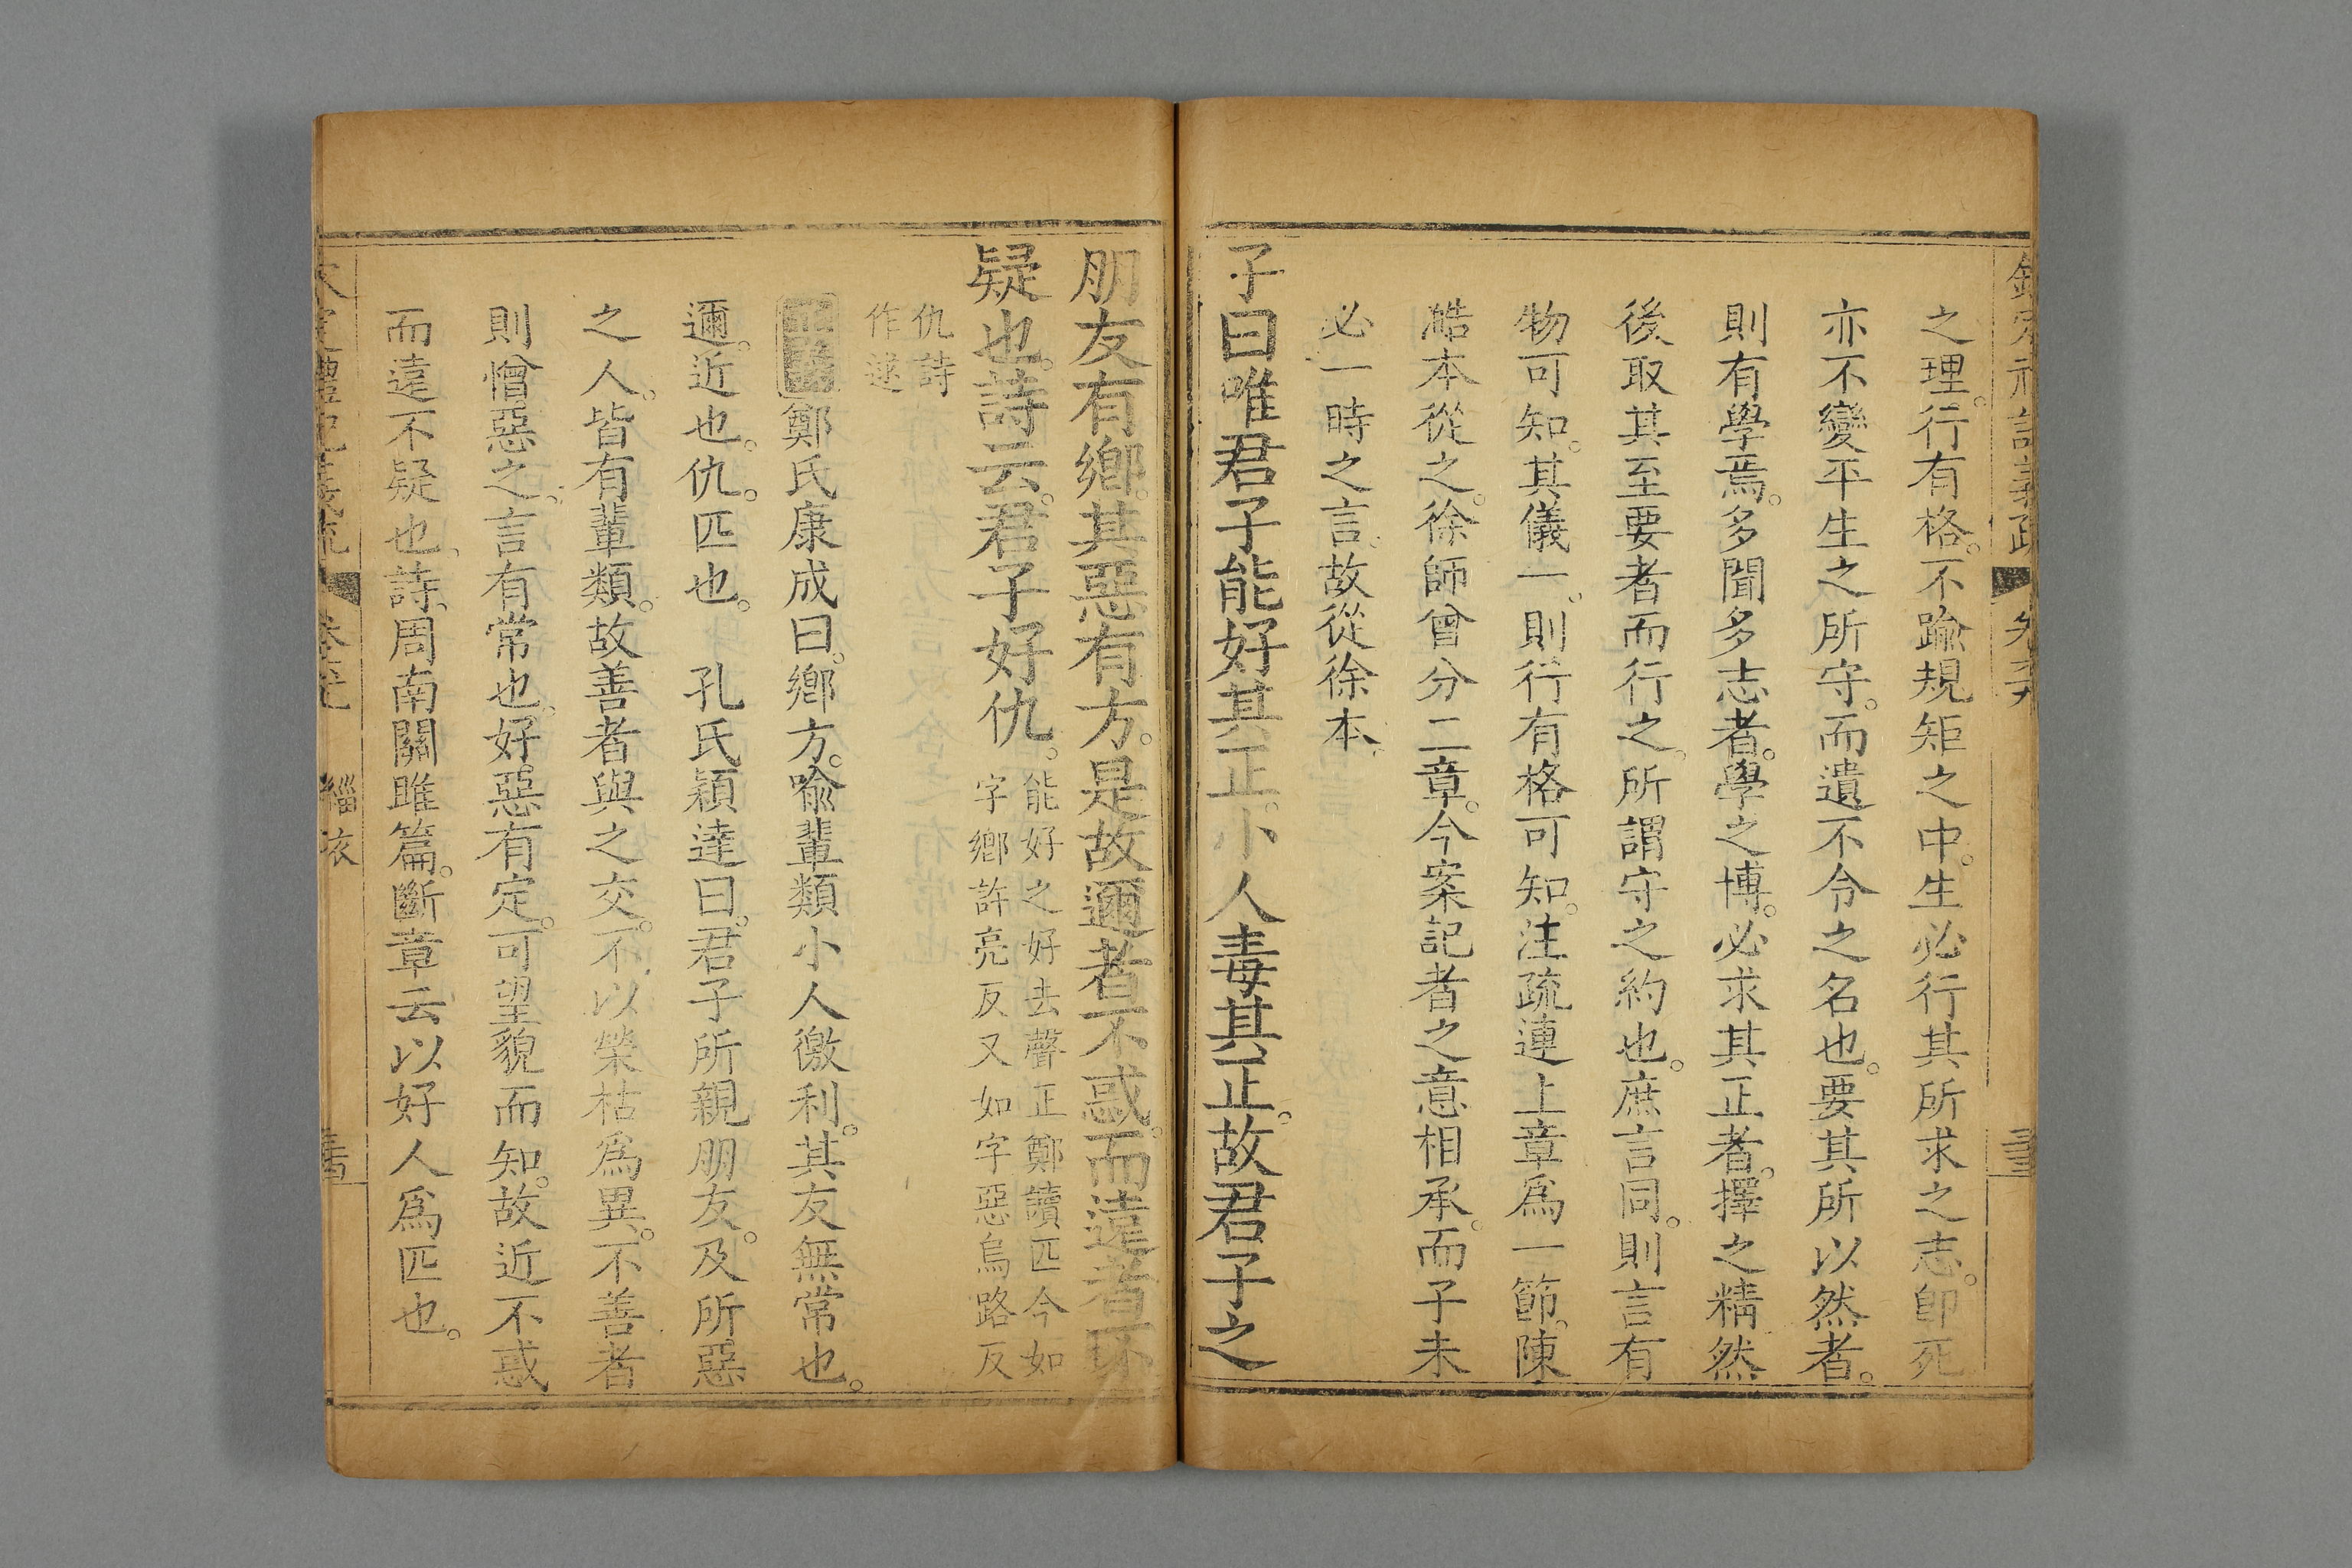 之理。行有格。不踰規矩之中。生必行其所求之志。卽死
亦不變平生之所守。而遺不令之名也。要其所以然者。
則有學焉。多聞多志者。學之博。必求其正者。擇之精然
後取其至要者而行之。所謂守之約也。庶言同。則言有
物可知。其儀一。則行有格可知。注疏連上章爲一節。陳
澔本從之。徐師曾分二章。今案記者之意相承。而子未
必一時之言。故從徐本。
子曰唯君子能好其正。小人毒其正。故君子之
朋友有鄉。其惡有方。是故邇者不惑。而遠者不
疑也。詩云。君子好仇。
能好之好去聲正鄭讀匹今如
字鄉許亮反又如字惡烏路反
仇詩
作逑
鄭氏康成曰。鄉方。喩輩類小人徼利。其友無常也。
邇。近也。仇。匹也。 孔氏穎達曰。君子所親朋友。及所惡
之人。皆有輩類。故善者與之交。不以榮枯爲異。不善者
則憎惡之。言有常也。好惡有定。可望貌而知。故近不惑
而遠不疑也。詩周南關雎篇。斷章云以好人爲匹也。
緇衣